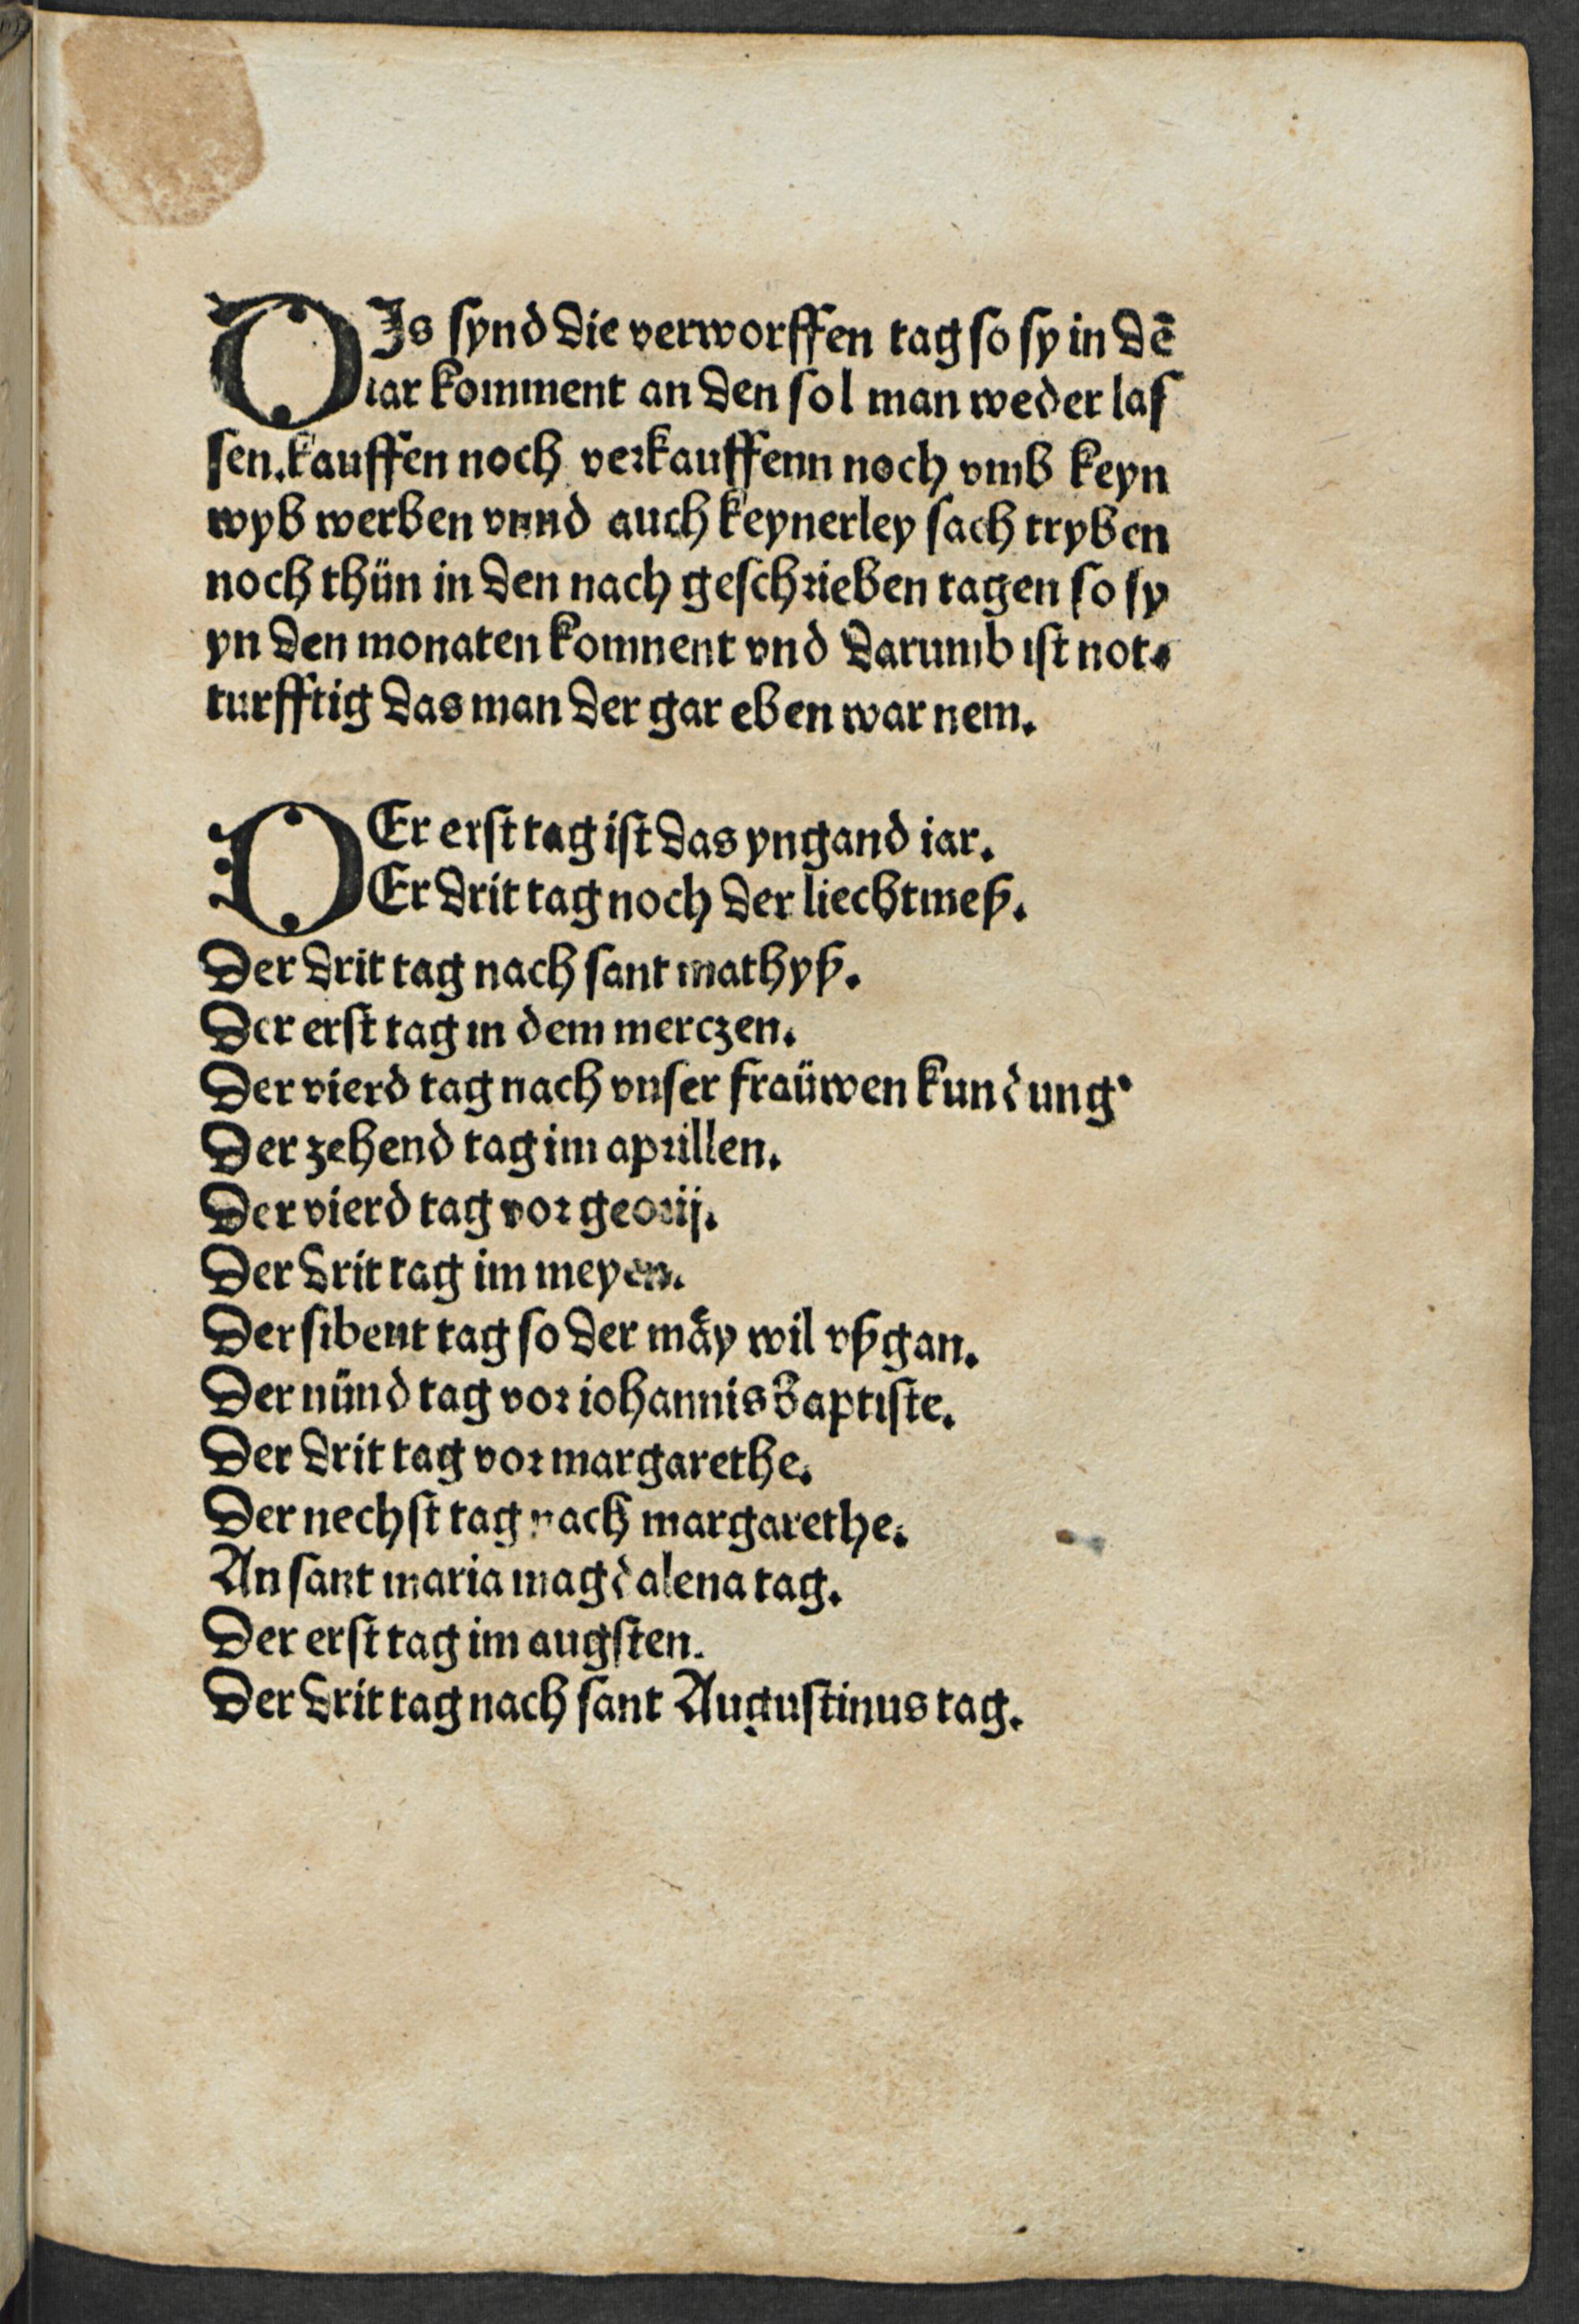 DJs synd die verworffen tag so sy in dē
iar komment an den sol man weder las
sen. kauffen noch verkauffenn noch vmb keyn
wyb werben vnnd auch keynerley sach tryben
noch thün in den nach geschrieben tagen so sy
yn den monaten komnent vnd darumb ist not⸗
turfftig das man der gar eben war nem.
DEr erst tag ist das yngand iar.
Er drit tag noch der liechtmeß.
Der drit tag nach sant mathyß.
Der erst tag in dem merczen.
Der vierd tag nach vnser fraüwen kundung.
Der zehend tag im aprillen.
Der vierd tag vor georij.
Der drit tag im meyen.
Der sibent tag so der maͤy wil vßgan.
Der nünd tag vor iohannis Baptiste.
Der drit tag vor margarethe.
Der nechst tag nach margarethe.
An sant maria magdalena tag.
Der erst tag im augsten.
Der drit tag nach sant Augustinus tag.